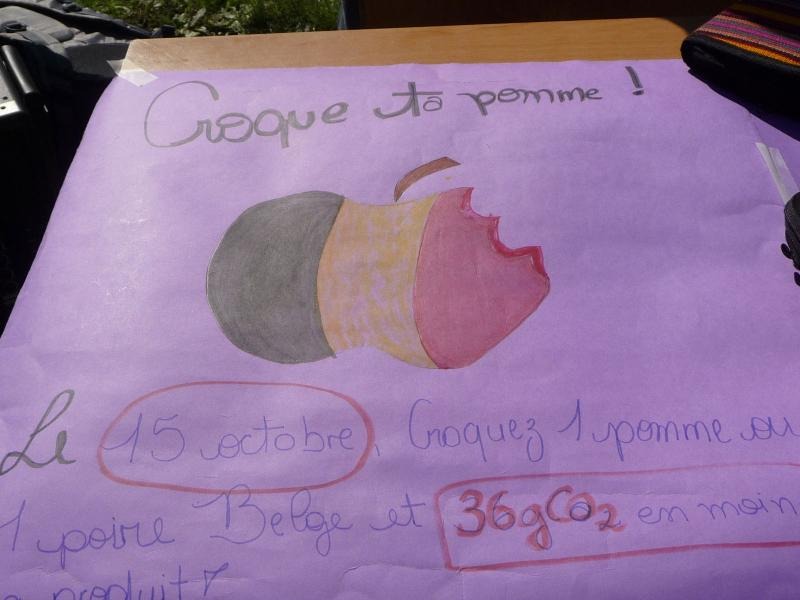 Croque ta pomme !
Le 15 octobre, Croquez 1 pomme ou
1 poire Belge et 36gCO2 en moin
produit